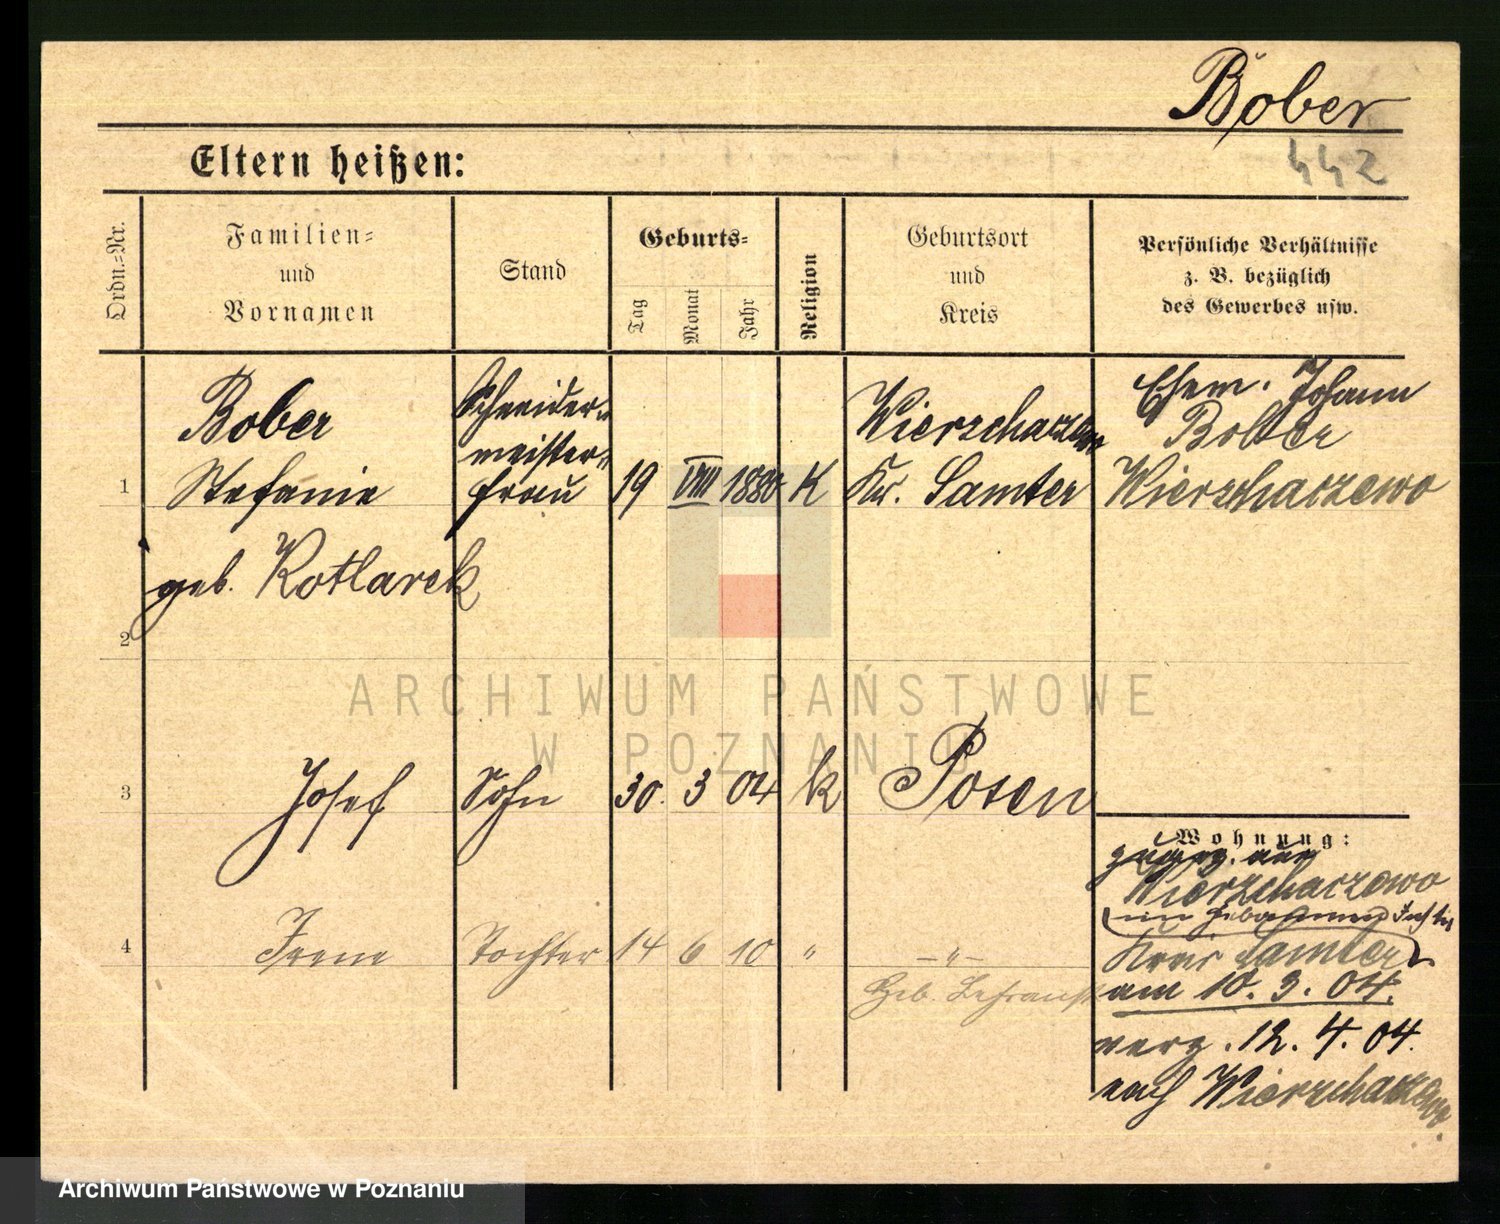 Bober
442
Eltern heißen:
Ordn.-Nr.
Familien-
und
Vornamen
Stand
Geburts-
Tag
Monat
Jahr
Religion
Geburtsort
und
Kreis
Persönliche Verhältnisse
z. B. bezüglich
des Gewerbes usw.
Bober
Schneider-
meister-
1 Stefanie frau 19 VIII 1880 K Kr. Samter
Wierzchaczewo
Ehem. Johann
Bober
Wierzchaczewo
geb. Kotlarek
2
3 Josef Sohn 30. 3 04 k Posen
4 Irene Tochter 14 6 10 " –"–
Geb.
Wohnung:
zugez. aus
Wierzchaczewo
im
Kreis Samter
am 10. 3. 04.
verz. 12. 4. 04.
nach Wierzchaczewo.
ARCHIWUM PAŃSTWOWE
W POZNANIU
Archiwum Państwowe w Poznaniu